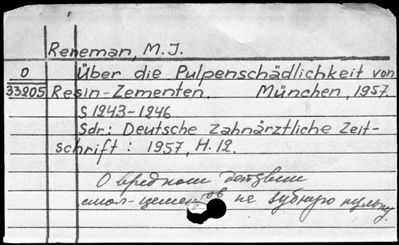 Reneman, M.J.
O Über die Pulpenschädlichkeit von
33205 Resin-Zementen. München, 1957.
S 1243-1246
Sdr.: Deutsche Zahnärztliche Zeit-
schrift: 1957, H.12.
О вредном действии
смол-цементов на зубную пульпу